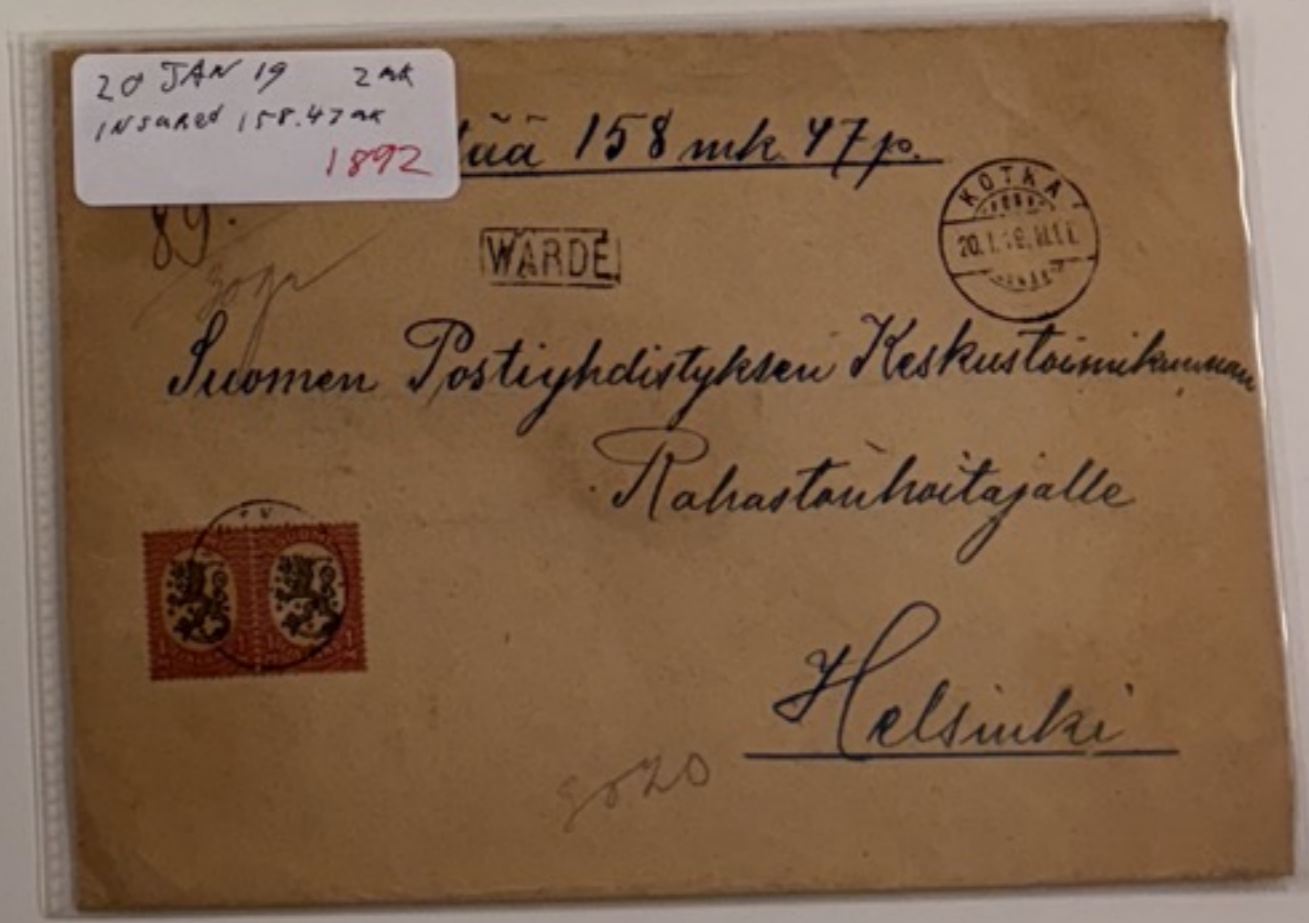 20 JAN 19 2 mk
INSURED 158.47 mk
1892
ää 158 mk. 47 p.
89.
WARDE
KOTKA
20.1.19.
Suomen Postiyhdistyksen Keskustoimikunnan
Rahastonhoitajalle
Helsinki